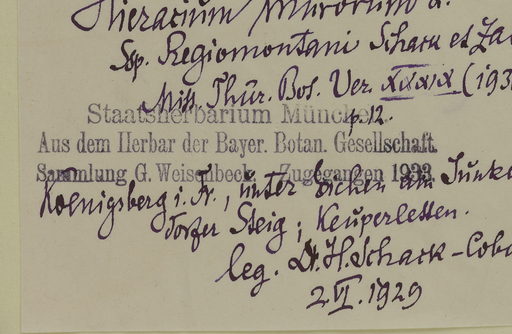 Hieracium murorum L.
Ssp. Regiomontani Schack et Za
Mitt. Thür. Bot. Ver. XXXIX (193
p. 12.
Staatsherbarium München
Aus dem Herbar der Bayer. Botan. Gesellschaft.
Sammlung G. Weisenbeck - Zugegangen 1933
Koenigsberg i. Fr., unter Eichen am Junke
dorfer Steig; Keuperletten.
leg. Dr. H. Schack-Cobu
2.VI.1929